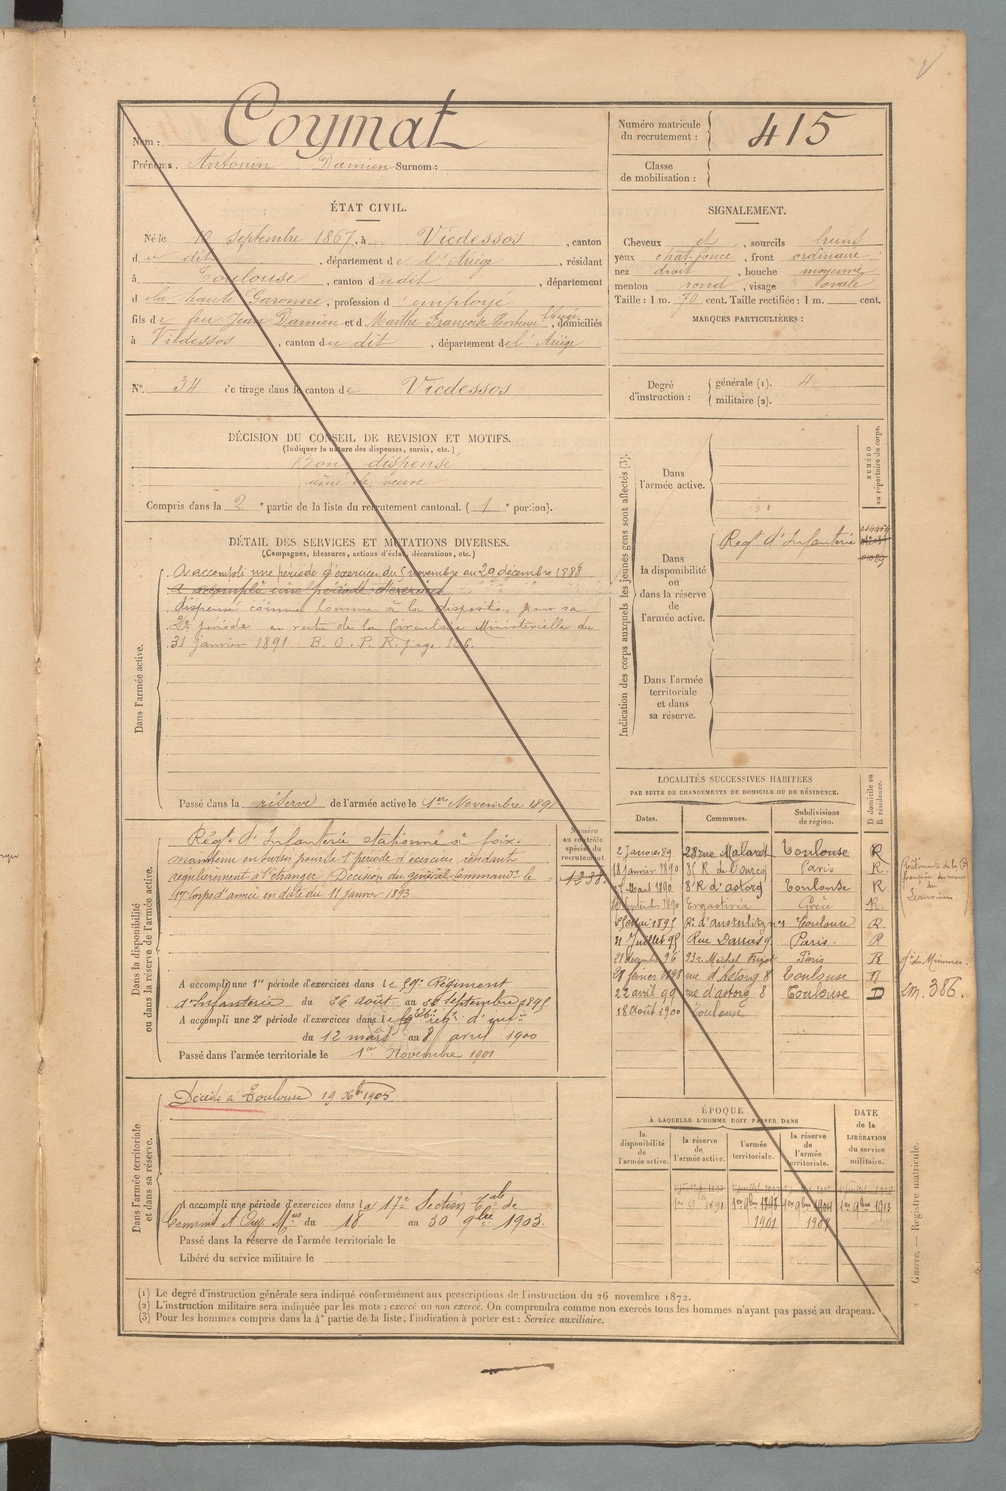 Nom : Coymat
Prénoms. Antonin Damien Surnom :
Numéro matricule
du recrutement : 415
Classe
de mobilisation :
ÉTAT CIVIL.
Né le 10 Septembre 1867, à Vicdessos, canton
du dit, département de l'Ariège, résidant
à Toulouse, canton dudit, département
d la haute Garonne, profession d'employé
fils de feu Jean Damien et d Marthe Françoise, domiciliés
à Vicdessos, canton du dit, département de l'Ariège
SIGNALEMENT.
Cheveux et, sourcils bruns
yeux chat. foncé, front ordinaire
nez droit, bouche moyenne
menton rond, visage ovale
Taille : 1 m. 70 cent. Taille rectifiée : 1 m. cent.
MARQUES PARTICULIÈRES :
N°. 34 de tirage dans le canton de Vicdessos
Degré
d'instruction :
générale (1). 4
militaire (2).
DÉCISION DU CONSEIL DE REVISION ET MOTIFS.
(Indiquer la nature des dispenses, sursis, etc.)
Bon dispensé
ainé de veuve
Compris dans la 2e partie de la liste du recrutement cantonal. (1e portion).
DÉTAIL DES SERVICES ET MUTATIONS DIVERSES.
(Campagnes, blessures, actions d'éclat, décorations, etc.)
Dans l'armée active.
A accompli une période d'exercices du 5 novembre au 20 décembre 1888
A accompli une période d'exercices
dispensé comme homme à la disposition pour sa
2e période en vertu de la Circulaire Ministérielle du
31 janvier 1891 B. O. P. R. page 106.
Passé dans la réserve de l'armée active le 1er Novembre 1891
Indication des corps auxquels les jeunes gens sont affectés (3).
NUMÉRO
au répertoire du corps.
Dans
l'armée active.
Dans
la disponibilité
ou
dans la réserve
de
l'armée active.
Regt d'Infanterie
Dans l'armée
territoriale
et dans
sa réserve.
Dans la disponibilité
ou dans la réserve de l'armée active.
Numéro
au contrôle
spécial du
recrutement
1238
Régt d'Infanterie stationné à foix.
maintenu en sursis pour la 1e période d'exercices résidant
régulièrement à l'étranger Décision du général Commandt le
17e corps d'armée en date du 11 janvier 1893
A accompli une 1re période d'exercices dans le 59e Régiment
d'Infanterie du 26 août au 22 septembre 1895
A accompli une 2e période d'exercices dans le
du 12 mars au 8 avril 1900
Passé dans l'armée territoriale le 1er Novembre 1901
LOCALITÉS SUCCESSIVES HABITÉES
PAR SUITE DE CHANGEMENTS DE DOMICILE OU DE RÉSIDENCE.
D domicile ou
R résidence.
Dates. Communes. Subdivisions
de région.
2 Janvier 89 28 rue Malard Toulouse R
8 janvier 1890 85 R. de l'Ourcq Paris R
Mars 1890 8 R d'astorg Toulouse R
septembre 1890 Ergastiria Grèce R.
mai 1895 Rt d'austerlitz Toulouse R.
11 Juillet 95 Rue Danras 9 Paris. R
21 décembre 96 23 r. Michel Bizot Paris R
janvier 1898 rue d'Astorg 8 Toulouse R
22 avril 99 rue d'astorg 8 Toulouse D
18 Août 1900 Toulouse
386.
Dans l'armée territoriale
et dans sa réserve.
Décédé à Toulouse 19 Xbre 1905
A accompli une période d'exercices dans la 17e Section de
Commis et Ouv. du 18 au 30 9bre 1903.
Passé dans la réserve de l'armée territoriale le
Libéré du service militaire le
ÉPOQUE
À LAQUELLE L'HOMME DOIT PASSER DANS
DATE
de la
LIBÉRATION
du service
militaire.
la
disponibilité
de
l'armée active.
la réserve
de
l'armée active.
l'armée
territoriale.
la réserve
de
l'armée
territoriale.
1er 9bre 1891 1er 9bre 1898 1er 9bre 1904 1er 9bre 1913
1901 1907
Guerre. — Registre matricule.
(1) Le degré d'instruction générale sera indiqué conformément aux prescriptions de l'instruction du 26 novembre 1872.
(2) L'instruction militaire sera indiquée par les mots : exercé ou non exercé. On comprendra comme non exercés tous les hommes n'ayant pas passé au drapeau.
(3) Pour les hommes compris dans la 4e partie de la liste, l'indication à porter est : Service auxiliaire.